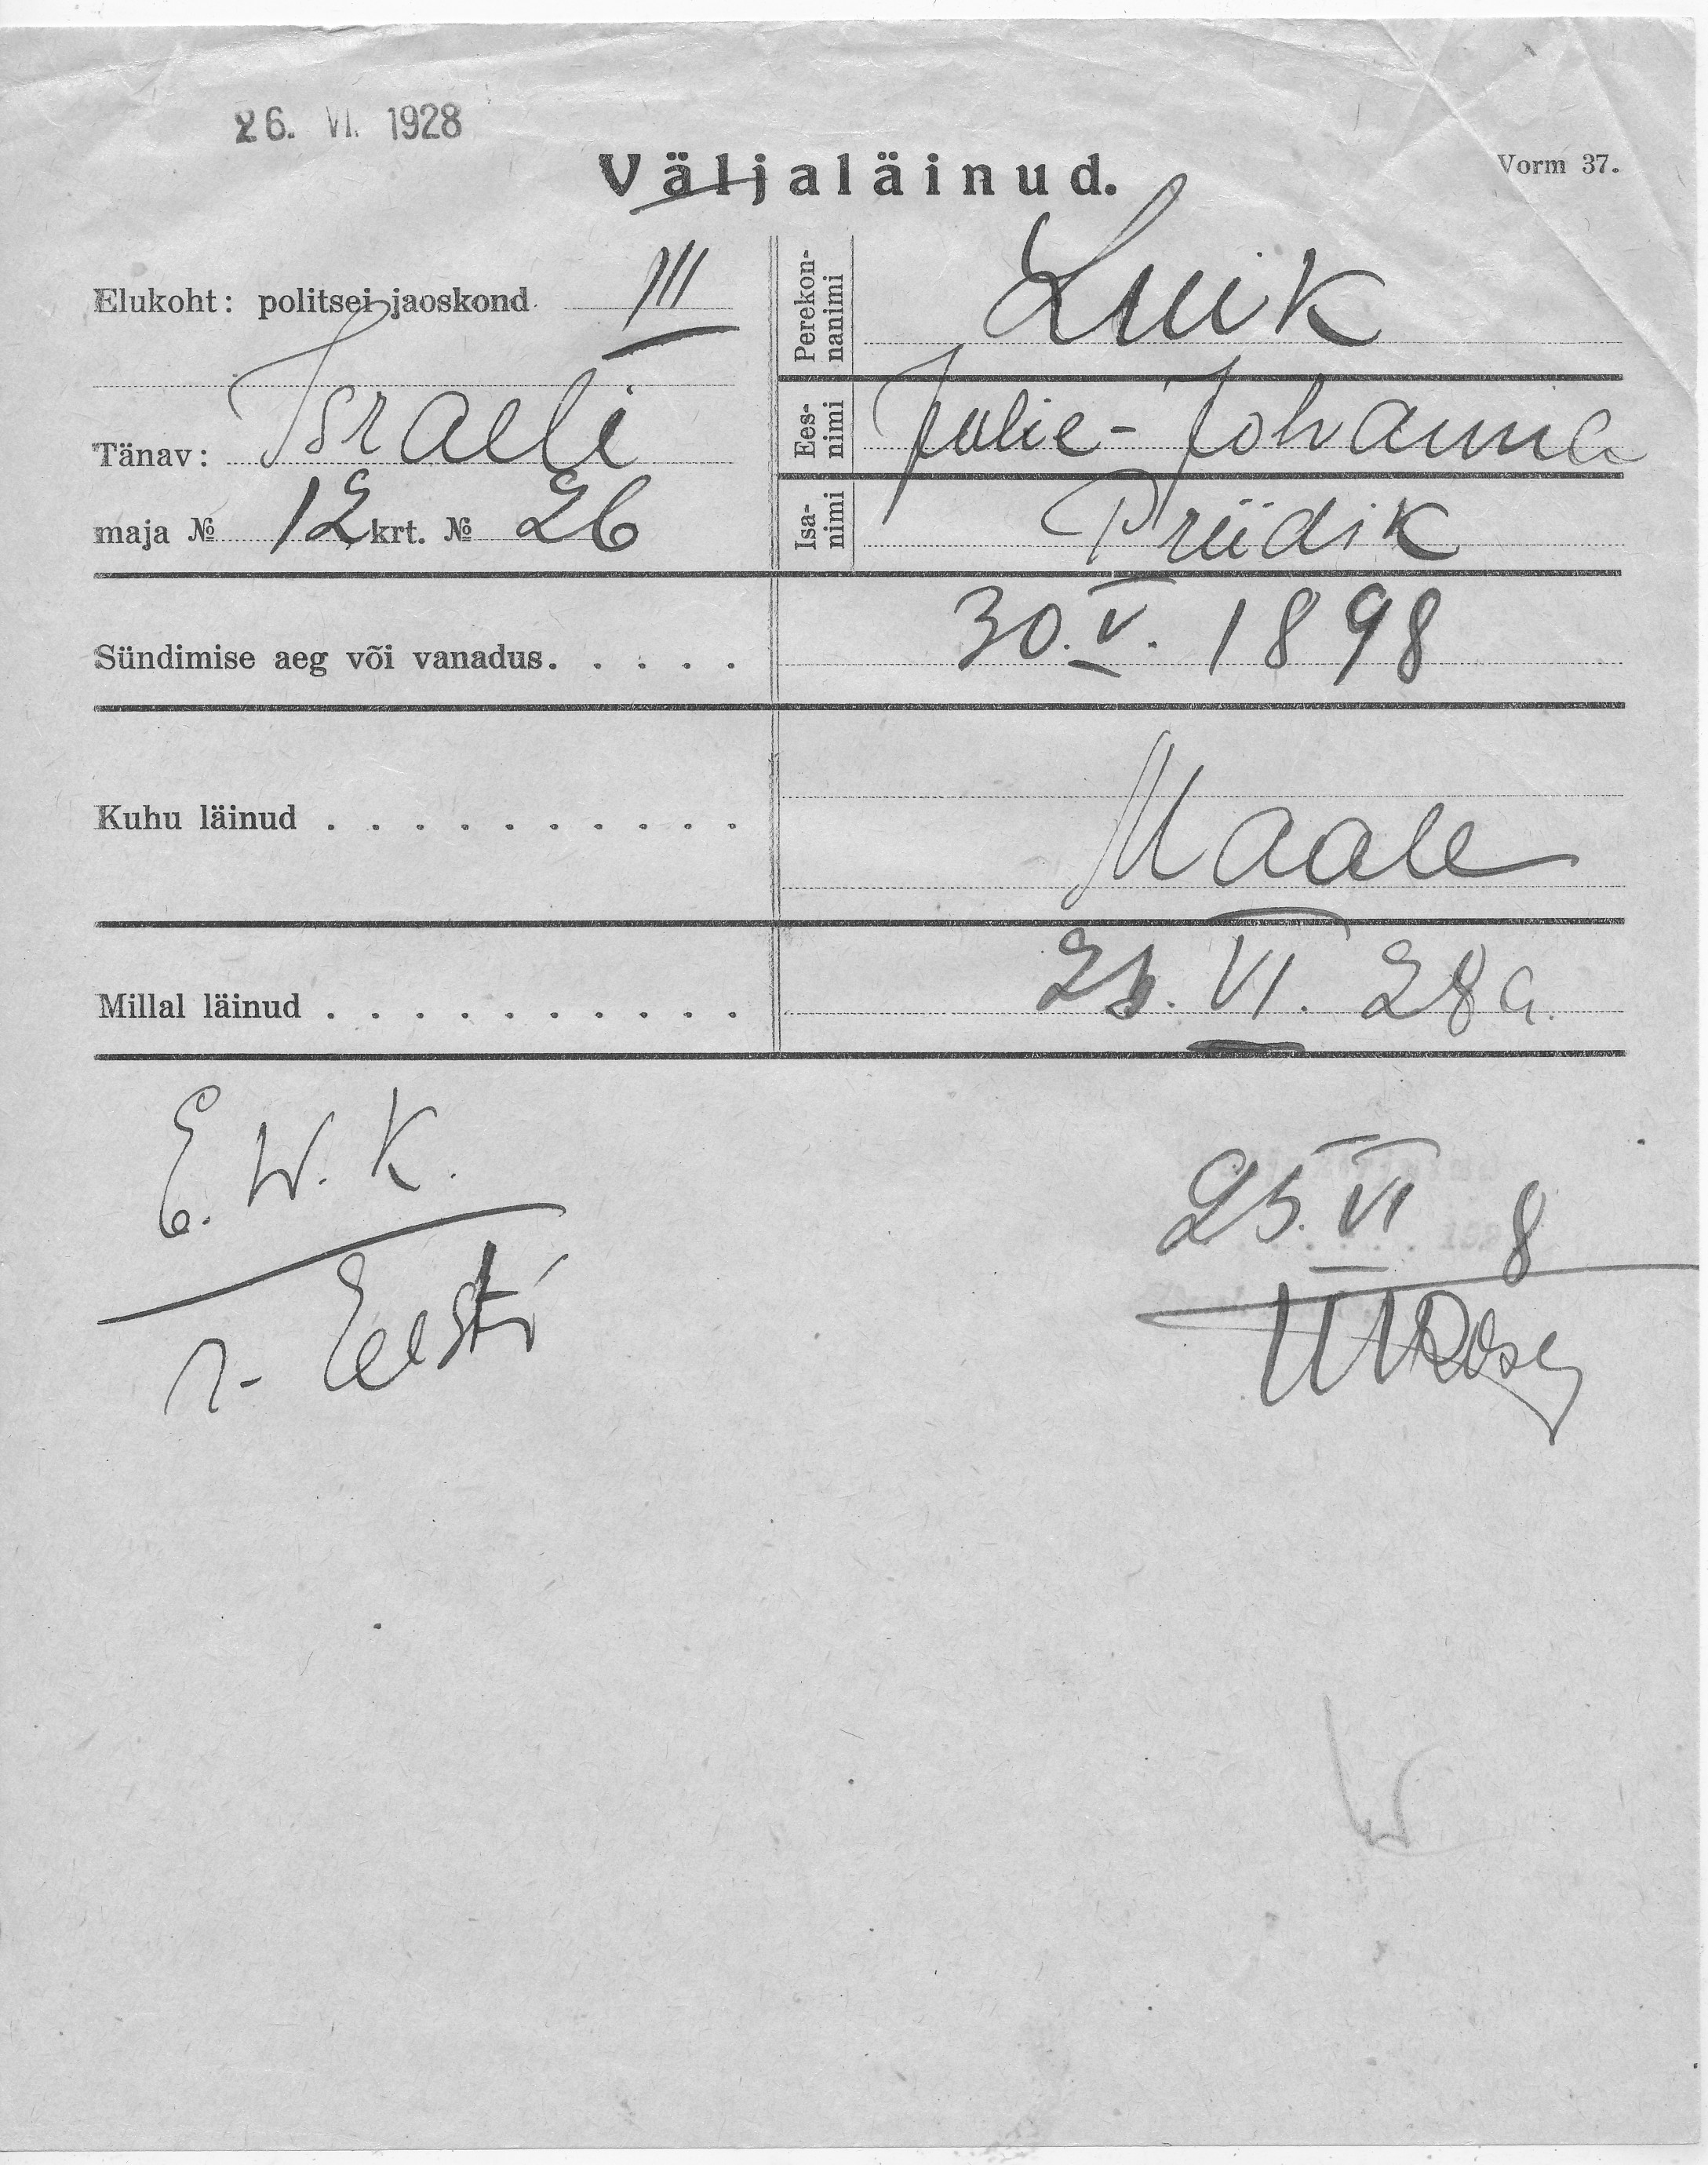 26. VI. 1928
Väljaläinud.
Vorm 37.
Elukoht: politsei-jaoskond III
Tänav: Israeli
maja № 12 krt. № 26
Perekon-
nanimi
Luik
Ees-
nimi
Julie-Johanna
Isa-
nimi
Priidik
Sündimise aeg või vanadus. . . . .
30.V. 1898
Kuhu läinud . . . . . . . . . .
Maale
Millal läinud . . . . . . . . . .
VI. 28 a.
E. W. K.
r- Eesti
25. VI 8